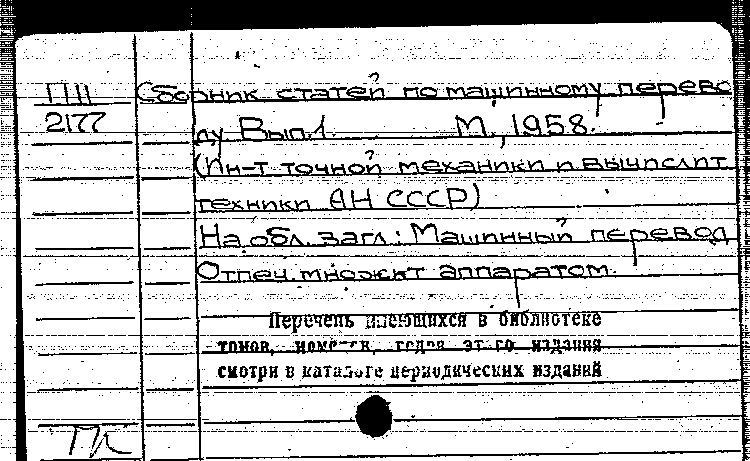 ПII Сборник статей по машинному перево
2177 ду Вып.1. М., 1958.
(Ин-т точной механики и вычислит
техники АН СССР)
На обл. загл.: Машинный перевод
Отпеч. множит аппаратом.
Перечень имеющихся в библиотеке
томов, номеров, годов этого издания
смотри в каталоге периодических изданий